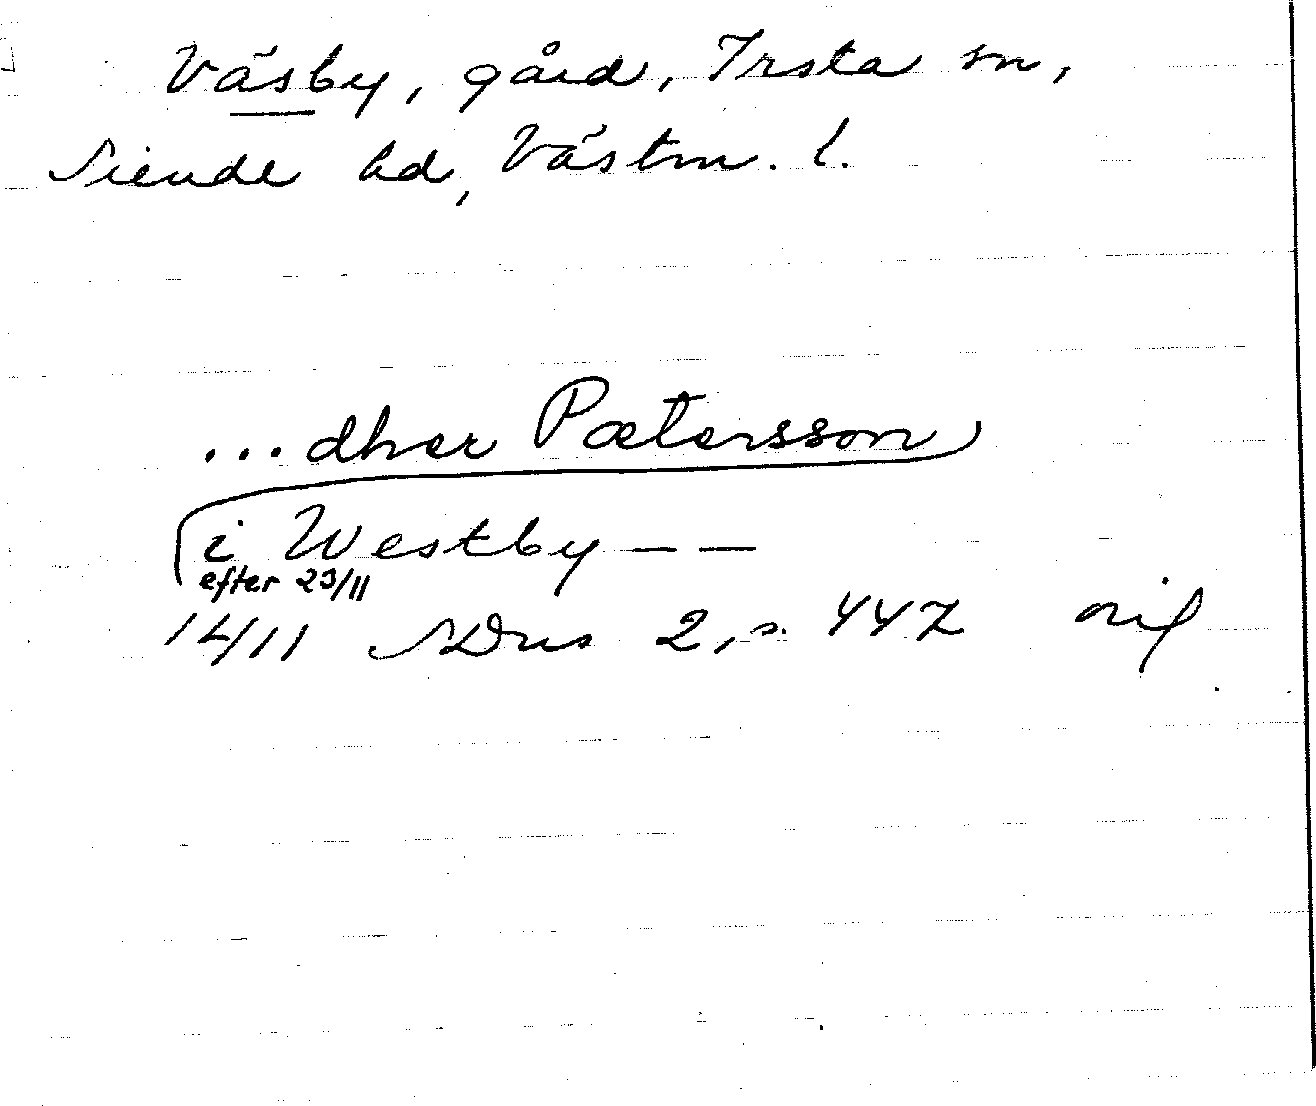 Väsby, gård, Irsta sn,
Siende hd, Västm. l.
...dher Pætersson
i Westby – –
efter 23/11
1411 SDns 2, s. 447 orig